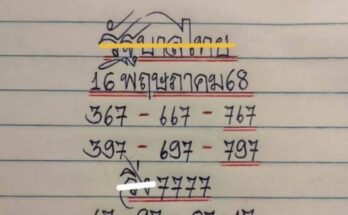 รัฐบาลไทย
16 พฤษภาคม 68
367 - 667 - 767
397 - 697 - 797
วิ่ง 7777